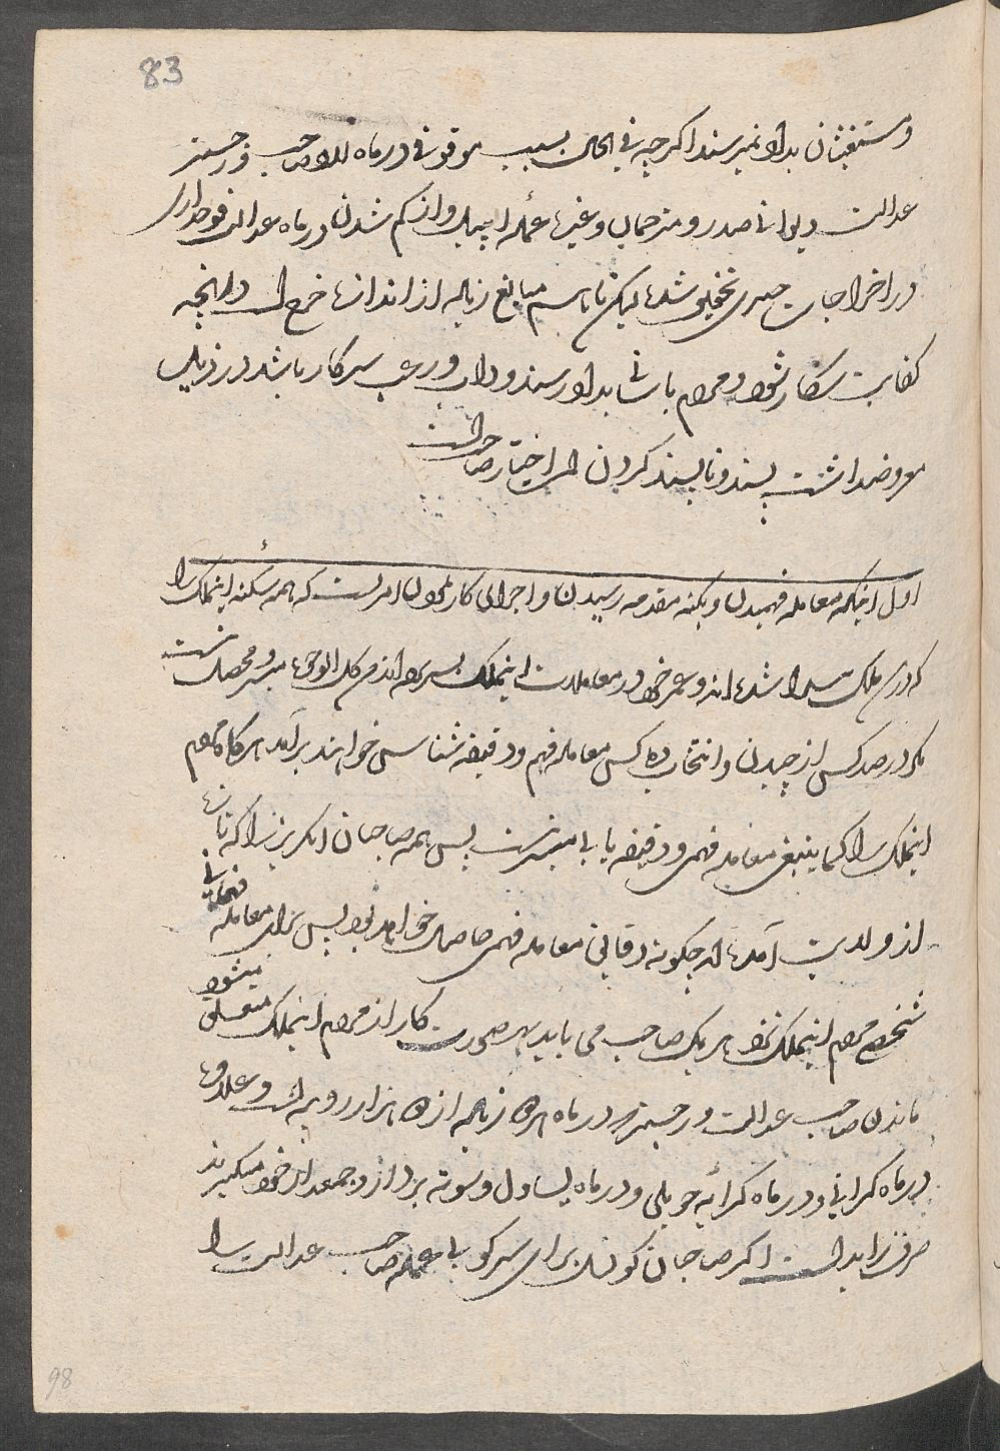 83
و مستغیثان بداد نمیرسند اکرچه فی الحال بسبب موقوفی درماه صاحب و رجستر
عدالت دیوانی صدر و مترجمان و غیره عمله اپیل و از کم شدن درماه عدالت فوجداری
در اخراجات تخفیفی شده لیکن تا هم مبالغ زیاده از اندازه خرچ است و آنچه
کفایت سرکار شود و مردم باسانی بداد رسند و داب و رعب سرکار باشد در ذیل
معروضداشت پسند و ناپسند کردن اختیار صاحبان است
اول اینکه معامله فهمیدن و بکنه مقدمه رسیدن و اجرای کار نمودن امریست که همه سکنه اینملک را
که درین ملک پیدا شده اند و عمر خود در معاملات اینملک بسر برده اند من کل الوجوه میسر و محصل نیست
مکر در صد کس از چیدن و انتخاب ده کس معامله فهم و دقیقه شناس خواهند برآمد هرکاه مردم
اینملک را کما ینبغی معامله فهمی و دقیقه یابی میسر نیست پس همه صاحبان انکریز را که تازه
از ولایت آمده اند چکونه دقایق معامله فهمی حاصل خواهد بود پس برای معامله فهمی
شخصی مردم اینملک نزد هر یک صاحب می باید بهر صورت کار از مردم اینملک متعلق میشود
ماندن صاحب عدالت و رجستر درماه زیاده از هزار روپیه است و علاوه
درماه کرانی و درماه کرایه حویلی و درماه یساول و سونته بردار و جمعدار خود میکیرند
صرف زاید است اکر صاحبان کونسل برای سرکوبی عمله صاحب عدالت را
98